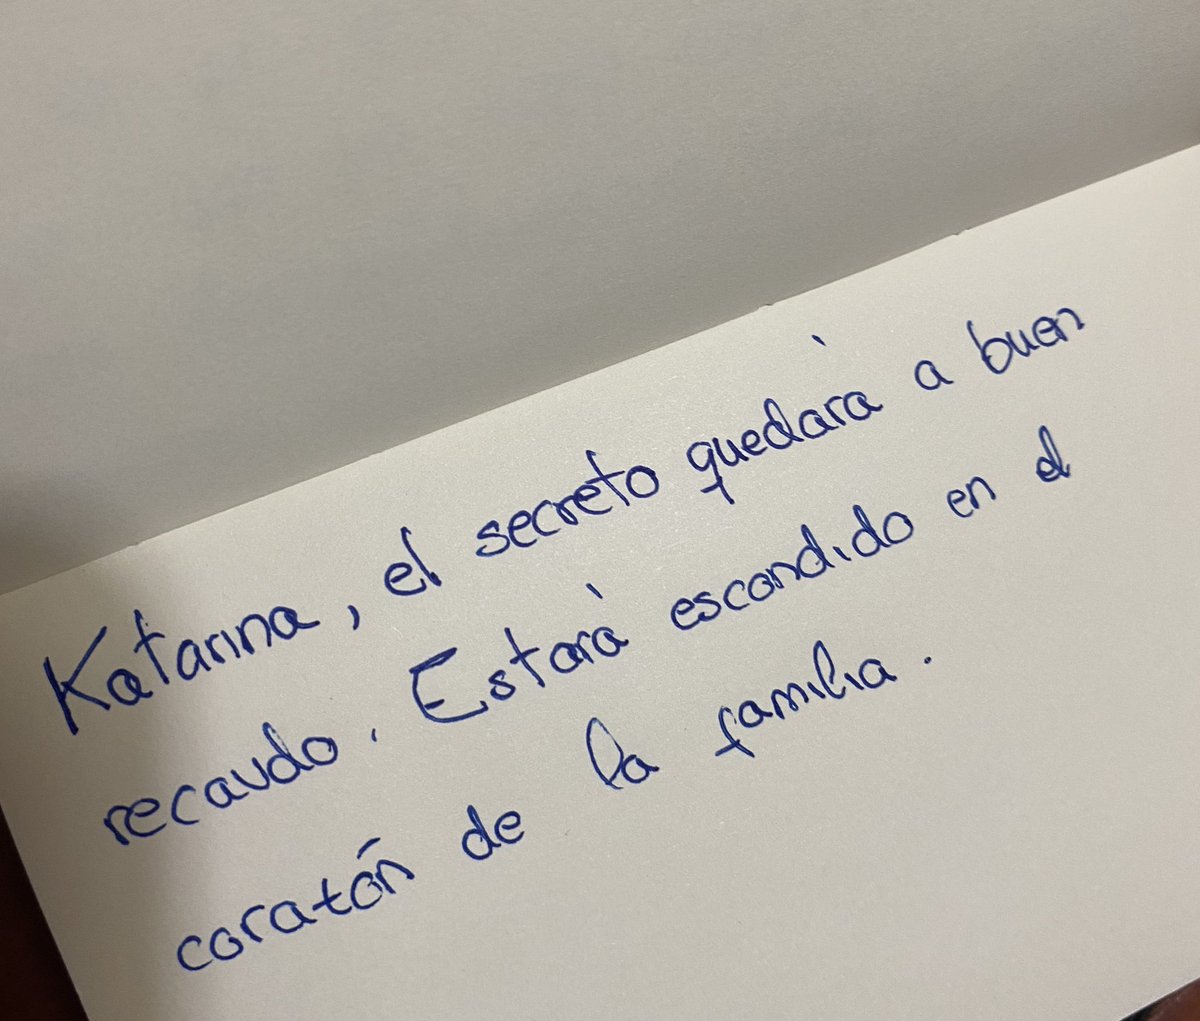 Katarina, el secreto quedará a buen
recaudo. Estará escondido en el
corazón de la familia.